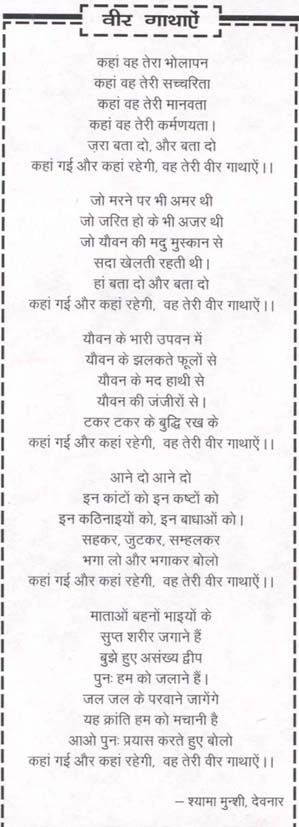 वीर गाथाऐं
कहां वह तेरा भोलापन
कहां वह तेरी सच्चरिता
कहां वह तेरी मानवता
कहां वह तेरी कर्मणयता।
ज़रा बता दो, और बता दो
कहां गई और कहां रहेगी, वह तेरी वीर गाथाऐं।।
जो मरने पर भी अमर थी
जो जरित हो के भी अजर थी
जो यौवन की मदु मुस्कान से
सदा खेलती रहती थी।
हां बता दो और बता दो
कहां गई और कहां रहेगी, वह तेरी वीर गाथाऐं।।
यौवन के भारी उपवन में
यौवन के झलकते फूलों से
यौवन के मद हाथी से
यौवन की जंजीरों से।
टकर टकर के बुद्धि रख के
कहां गई और कहां रहेगी, वह तेरी वीर गाथाऐं।।
आने दो आने दो
इन कांटों को इन कष्टों को
इन कठिनाइयों को, इन बाधाओं को।
सहकर, जुटकर, सम्हलकर
भगा लो और भगाकर बोलो
कहां गई और कहां रहेगी, वह तेरी वीर गाथाऐं।।
माताओं बहनों भाइयों के
सुप्त शरीर जगाने हैं
बुझे हुए असंख्य द्वीप
पुनः हम को जलाने हैं।
जल जल के परवाने जागेंगे
यह क्रांति हम को मचानी है
आओ पुनः प्रयास करते हुए बोलो
कहां गई और कहां रहेगी, वह तेरी वीर गाथाऐं।।
– श्यामा मुन्शी, देवनार